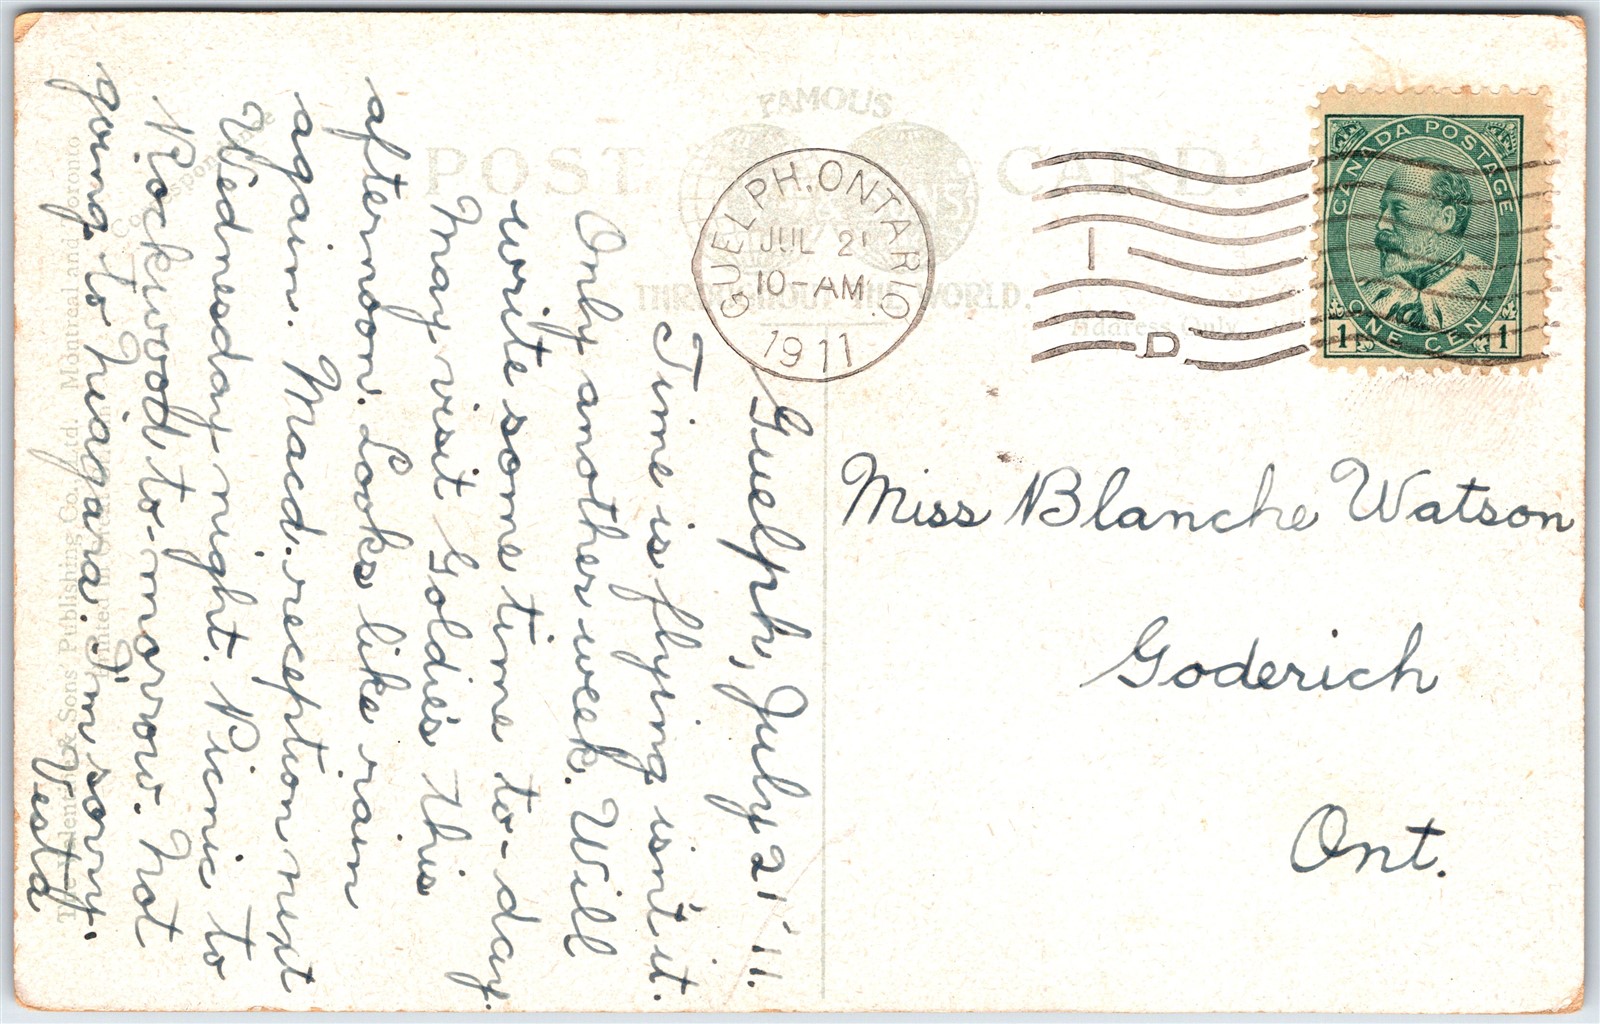 FAMOUS
POST CARD.
THROUGHOUT THE WORLD.
Address Only
Correspondence
GUELPH, ONTARIO
JUL 21
10-AM
1911
1
D
CANADA POSTAGE
1 ONE CENT 1
Miss Blanche Watson
Goderich
Ont.
Guelph, July 21 '11.
Time is flying isn't it.
Only another week. Will
write some time to-day.
May visit Goldie's this
afternoon. Looks like rain
again. Macd. reception next
Wednesday night. Picnic to
Rockwood to-morrow. Not
going to Niagara. I'm sorry.
Vesta
Sons' Publishing Co., Ltd. Montreal and Toronto
Printed in